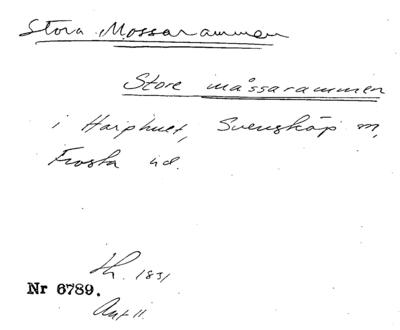 Stora Mossarammen
Store måssarammen
i Harphult, Svensköp m,
Frosta hd.
Lh. 1831
Nr 6789.
Akt 11.